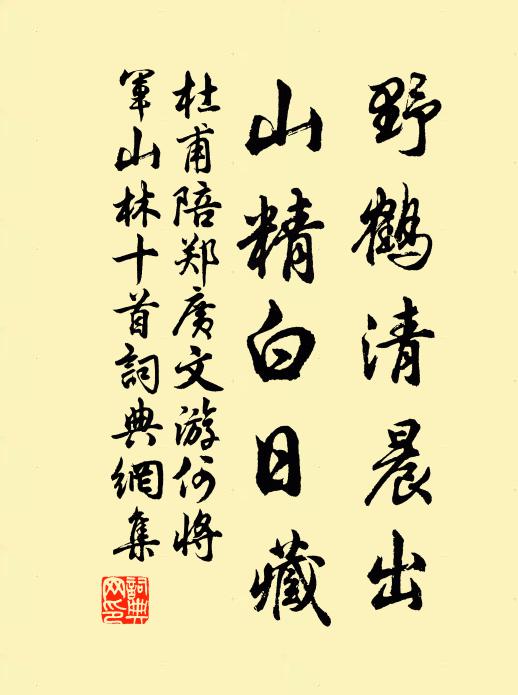 野鹤清晨出
山精白日藏
杜甫陪郑广文游何将
军山林十首詞典網集
詞典網印